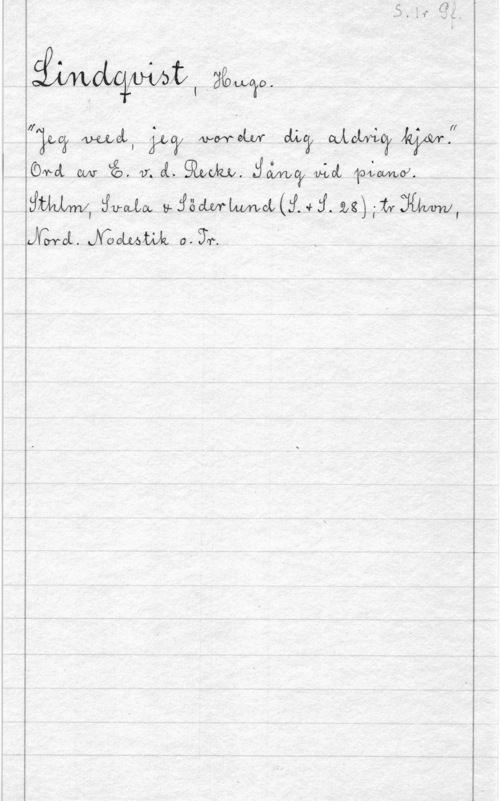 S. 1r 9f.
Lindqvist, Hugo.
"Jeg veed, jeg vorder dig aldrig kjær."
Ord av E. v. d. Recke. Sång vid piano.
Sthlm, Svala & Söderlund (S. + S. 28); tr Khvn,
Nord. Nodestik o. Tr.